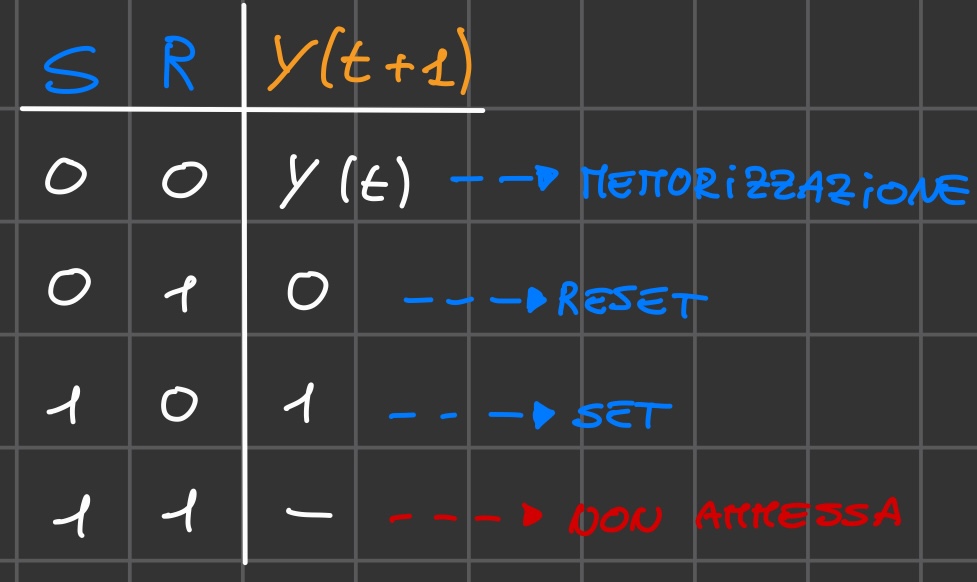 S R Y(t+1)
0 0 Y(t) MEMORiZZAZiONE
0 1 0 RESET
1 0 1 SET
1 1 - NON AMMESSA